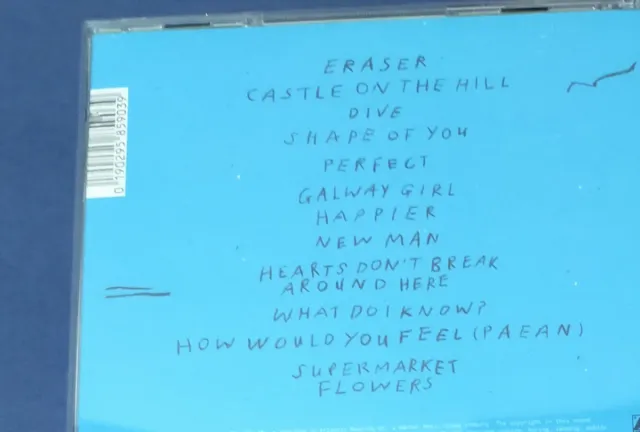 ERASER
CASTLE ON THE HILL
DIVE
SHAPE OF YOU
PERFECT
GALWAY GIRL
HAPPIER
NEW MAN
HEARTS DON'T BREAK
AROUND HERE
WHAT DO I KNOW?
HOW WOULD YOU FEEL (PAEAN)
SUPERMARKET
FLOWERS
0 190295 859039